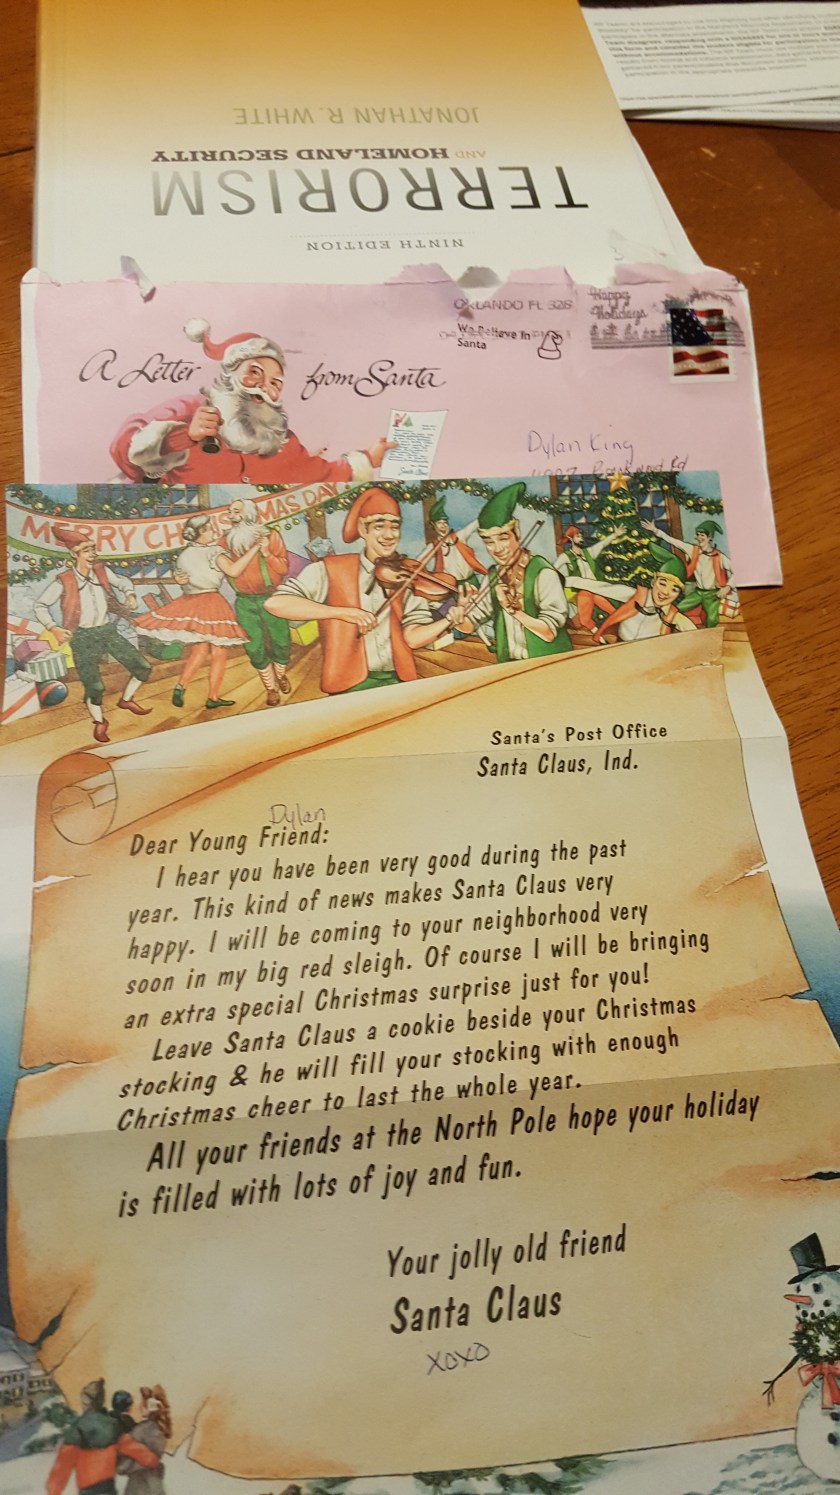 JONATHAN R. WHITE
TERRORISM
AND HOMELAND SECURITY
NINTH EDITION
A Letter from Santa
ORLANDO FL 328
We Believe in
Santa
Happy
Holidays
Dylan King
Rd
MERRY CHRISTMAS DAY
Santa's Post Office
Santa Claus, Ind.
Dylan
Dear Young Friend:
I hear you have been very good during the past
year. This kind of news makes Santa Claus very
happy. I will be coming to your neighborhood very
soon in my big red sleigh. Of course I will be bringing
an extra special Christmas surprise just for you!
Leave Santa Claus a cookie beside your Christmas
stocking & he will fill your stocking with enough
Christmas cheer to last the whole year.
All your friends at the North Pole hope your holiday
is filled with lots of joy and fun.
Your jolly old friend
Santa Claus
xoxo